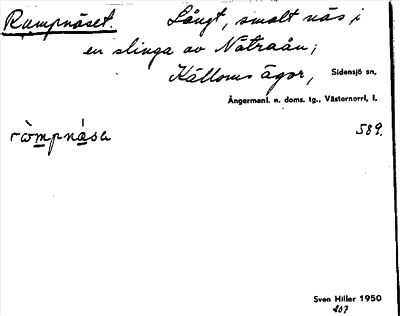 Rumpnäset. Långt, smalt näs i
en slinga av Nätraån;
Källoms ägor, Sidensjö sn,
Ångermanl. n. doms. tg., Västernorrl, l.
ròmpnása 589.
Sven Hiller 1950
207